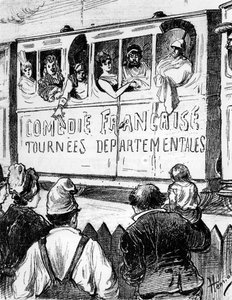 COMÉDIE FRANÇAISE
TOURNÉES DÉPARTEMENTALES